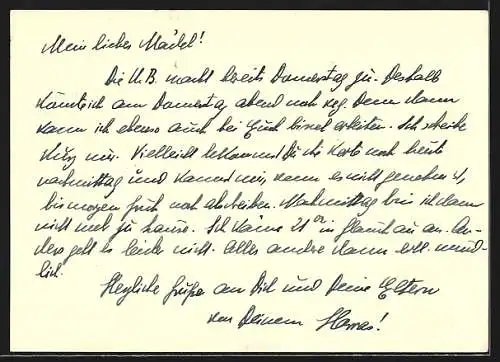 Mein liebes Mädel!
Die U.B. macht bereits Donnerstag zu. Deshalb
könnte ich am Donnerstag abend noch weg. Denn dann
kann ich ebenso auch bei Euch bissel arbeiten. Ich schreibe
kurz nur. Vielleicht bekommst Du die Karte noch heut
nachmittag und kannst mir, wenn es nicht genehm ist,
bis morgen früh noch abschreiben. Nachmittag bin ich dann
nicht mehr zu Hause. Ich käme 21 in Glauchau an. An-
ders geht es leider nicht. Alles andre dann evtl. münd-
lich.
Herzliche Grüße an Dich und Deine Eltern
von Deinem